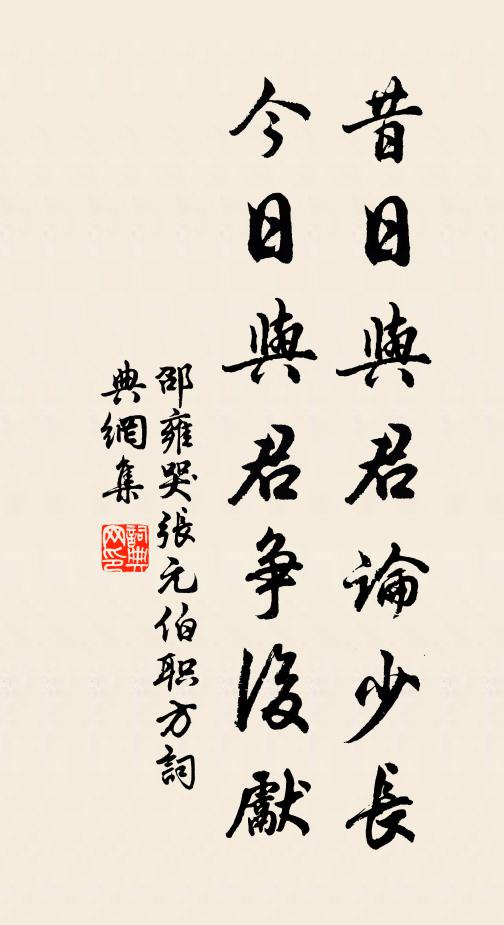 昔日與君論少長
今日與君争後獻
邵雍哭張元伯职方詞
典網集
詞典網印